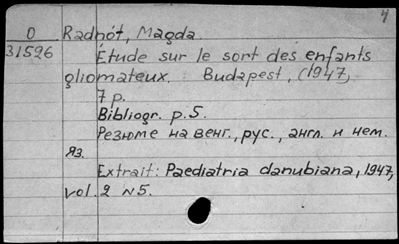 4
O Radnót, Magda.
31526 Étude sur le sort des enfants
gliomateux. Budapest, (1947,
7 p.
Bibliogr. p. 5.
Резюме на венг., рус., англ. и нем.
яз.
Extrait: Paediatria danubiana, 1947,
vol. 2 N5.